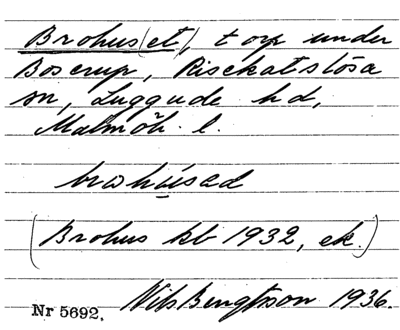 Brohus(et), torp under
Boserup, Risekatslösa
sn, Luggude hd,
Malmöh. l.
brohúsad
(Brohus kb 1932, ek.)
Nils Bengtsson 1936.
Nr 5692.